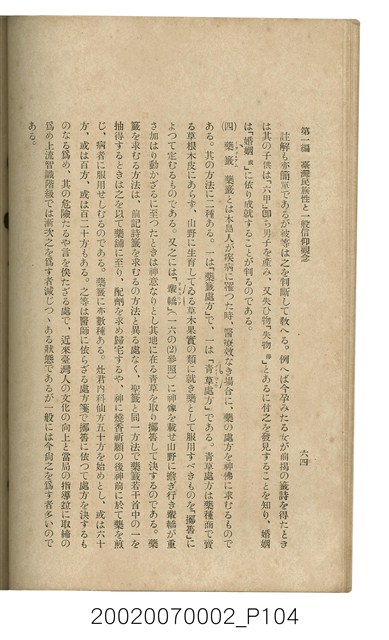 第一編　臺灣民族性と一般信仰觀念
六四
註解も亦簡單であるが彼等は之を判斷して敎へる。例へば今孕みたる女が前揭の籤詩を得たとき
は其の子供は「六甲」卽ち男子を產み、又失ひ物「失物」とあるに付之を發見することを知り、婚姻
は「婚姻」に依り成就することが判るのである。
(四)　藥籤　藥籤とは本島人が疾病に罹つた時、醫療效なき場合に、藥の處方を神佛に求むるもので
ある。其の方法に二種ある。一は「藥籤處方」で、一は「靑草處方」である。靑草處方は藥種商で賣
る草根木皮にあらず、山野に生育してゐる草木果實の類に就き藥として服用すべきものを、「擲筶」に
よつて定むるものである。又之には「輦轎」(一六の(2)參照)に神像を載せ山野に擔ぎ行き輦轎が重
さ加はり動かざるに至つたときは神意なりとし其地に在る靑草を取り擲筶して決するのである。藥
籤を求むる方法は、前記詩籤を求むるの方法と異る處なく、聖籤と同一方法で藥籤若干首中の一を
抽得するときは之を以て藥鋪に至り、配劑を求め歸宅するや、神に燒香祈願の後神前に於て藥を煎
じ、病者に服用せしむるのである。藥籤に亦數種ある。灶君内科仙方五十方を始めとし、或は六十
方、或は百方、或は百二十方もある。之等は醫師に依らざる處方箋で擲筶に依つて處方を決するも
のなる爲め、其の危險たるや言を俟たざる處で、近來臺灣人の文化の向上と當局の指導竝に取締の
爲め上流智識階級では漸次之を爲す者減じつゝある狀態であるが一般には今尙之を爲す者多いので
ある。
20020070002_P104